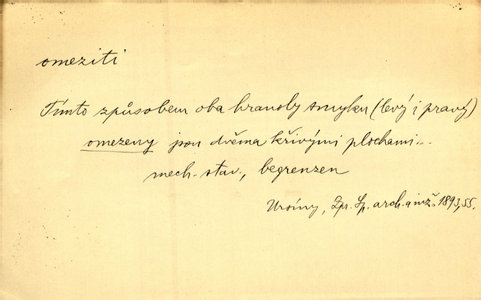 omeziti
Tímto způsobem oba hranoly smyku (levý i pravý)
omezeny jsou dvěma křivými plochami...
mech. stav., begrenzen
Zpr. Sp. arch. a inž. 1893, 55.